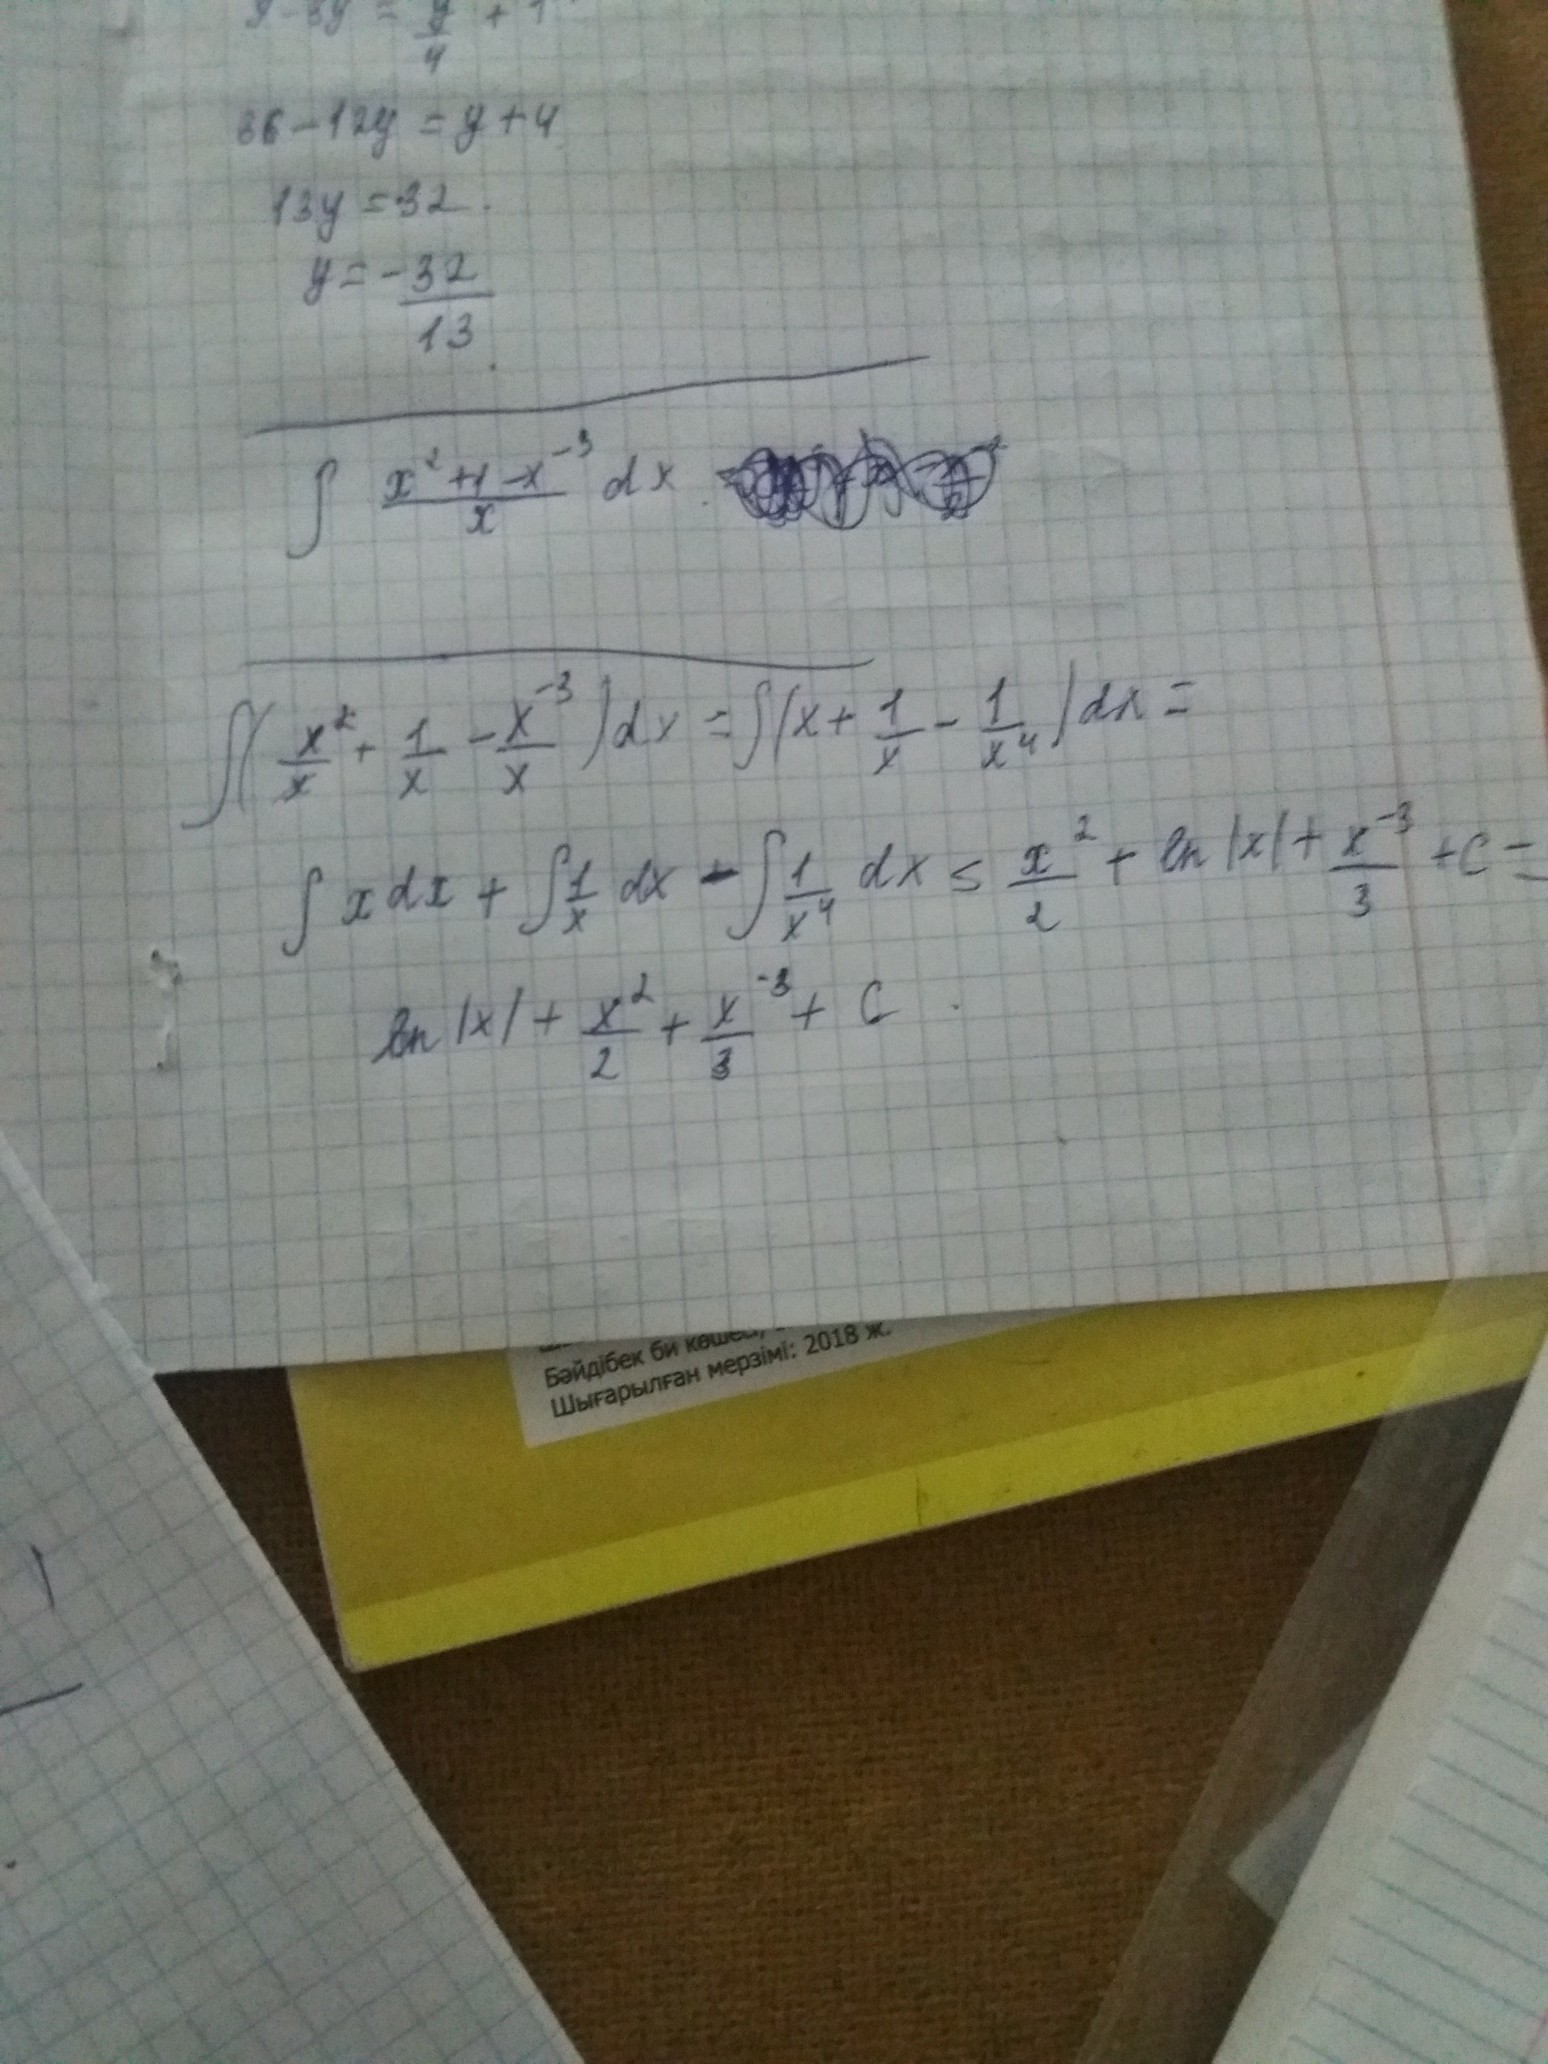 36 - 12y = y + 4
13y = 32.
y = -32/13
∫ (x² + 1 - x⁻³)/x dx
∫(x²/x + 1/x - x⁻³/x)dx = ∫(x + 1/x - 1/x⁴)dx =
∫ x dx + ∫ 1/x dx - ∫ 1/x⁴ dx = x²/2 + ln|x| + x⁻³/3 + C =
ln|x| + x²/2 + x⁻³/3 + C.
Бәйдібек би көшесі,
Шығарылған мерзімі: 2018 ж.